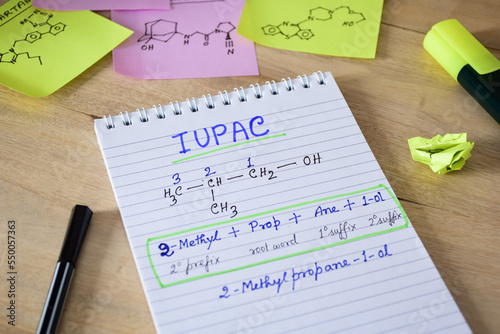 IUPAC
3 2 1
H3C — CH — CH2 — OH
CH3
2-Methyl + Prop + Ane + 1-ol
2° prefix root word 1° suffix 2° suffix
2-Methylpropane-1-ol
Adobe Stock | #550057363